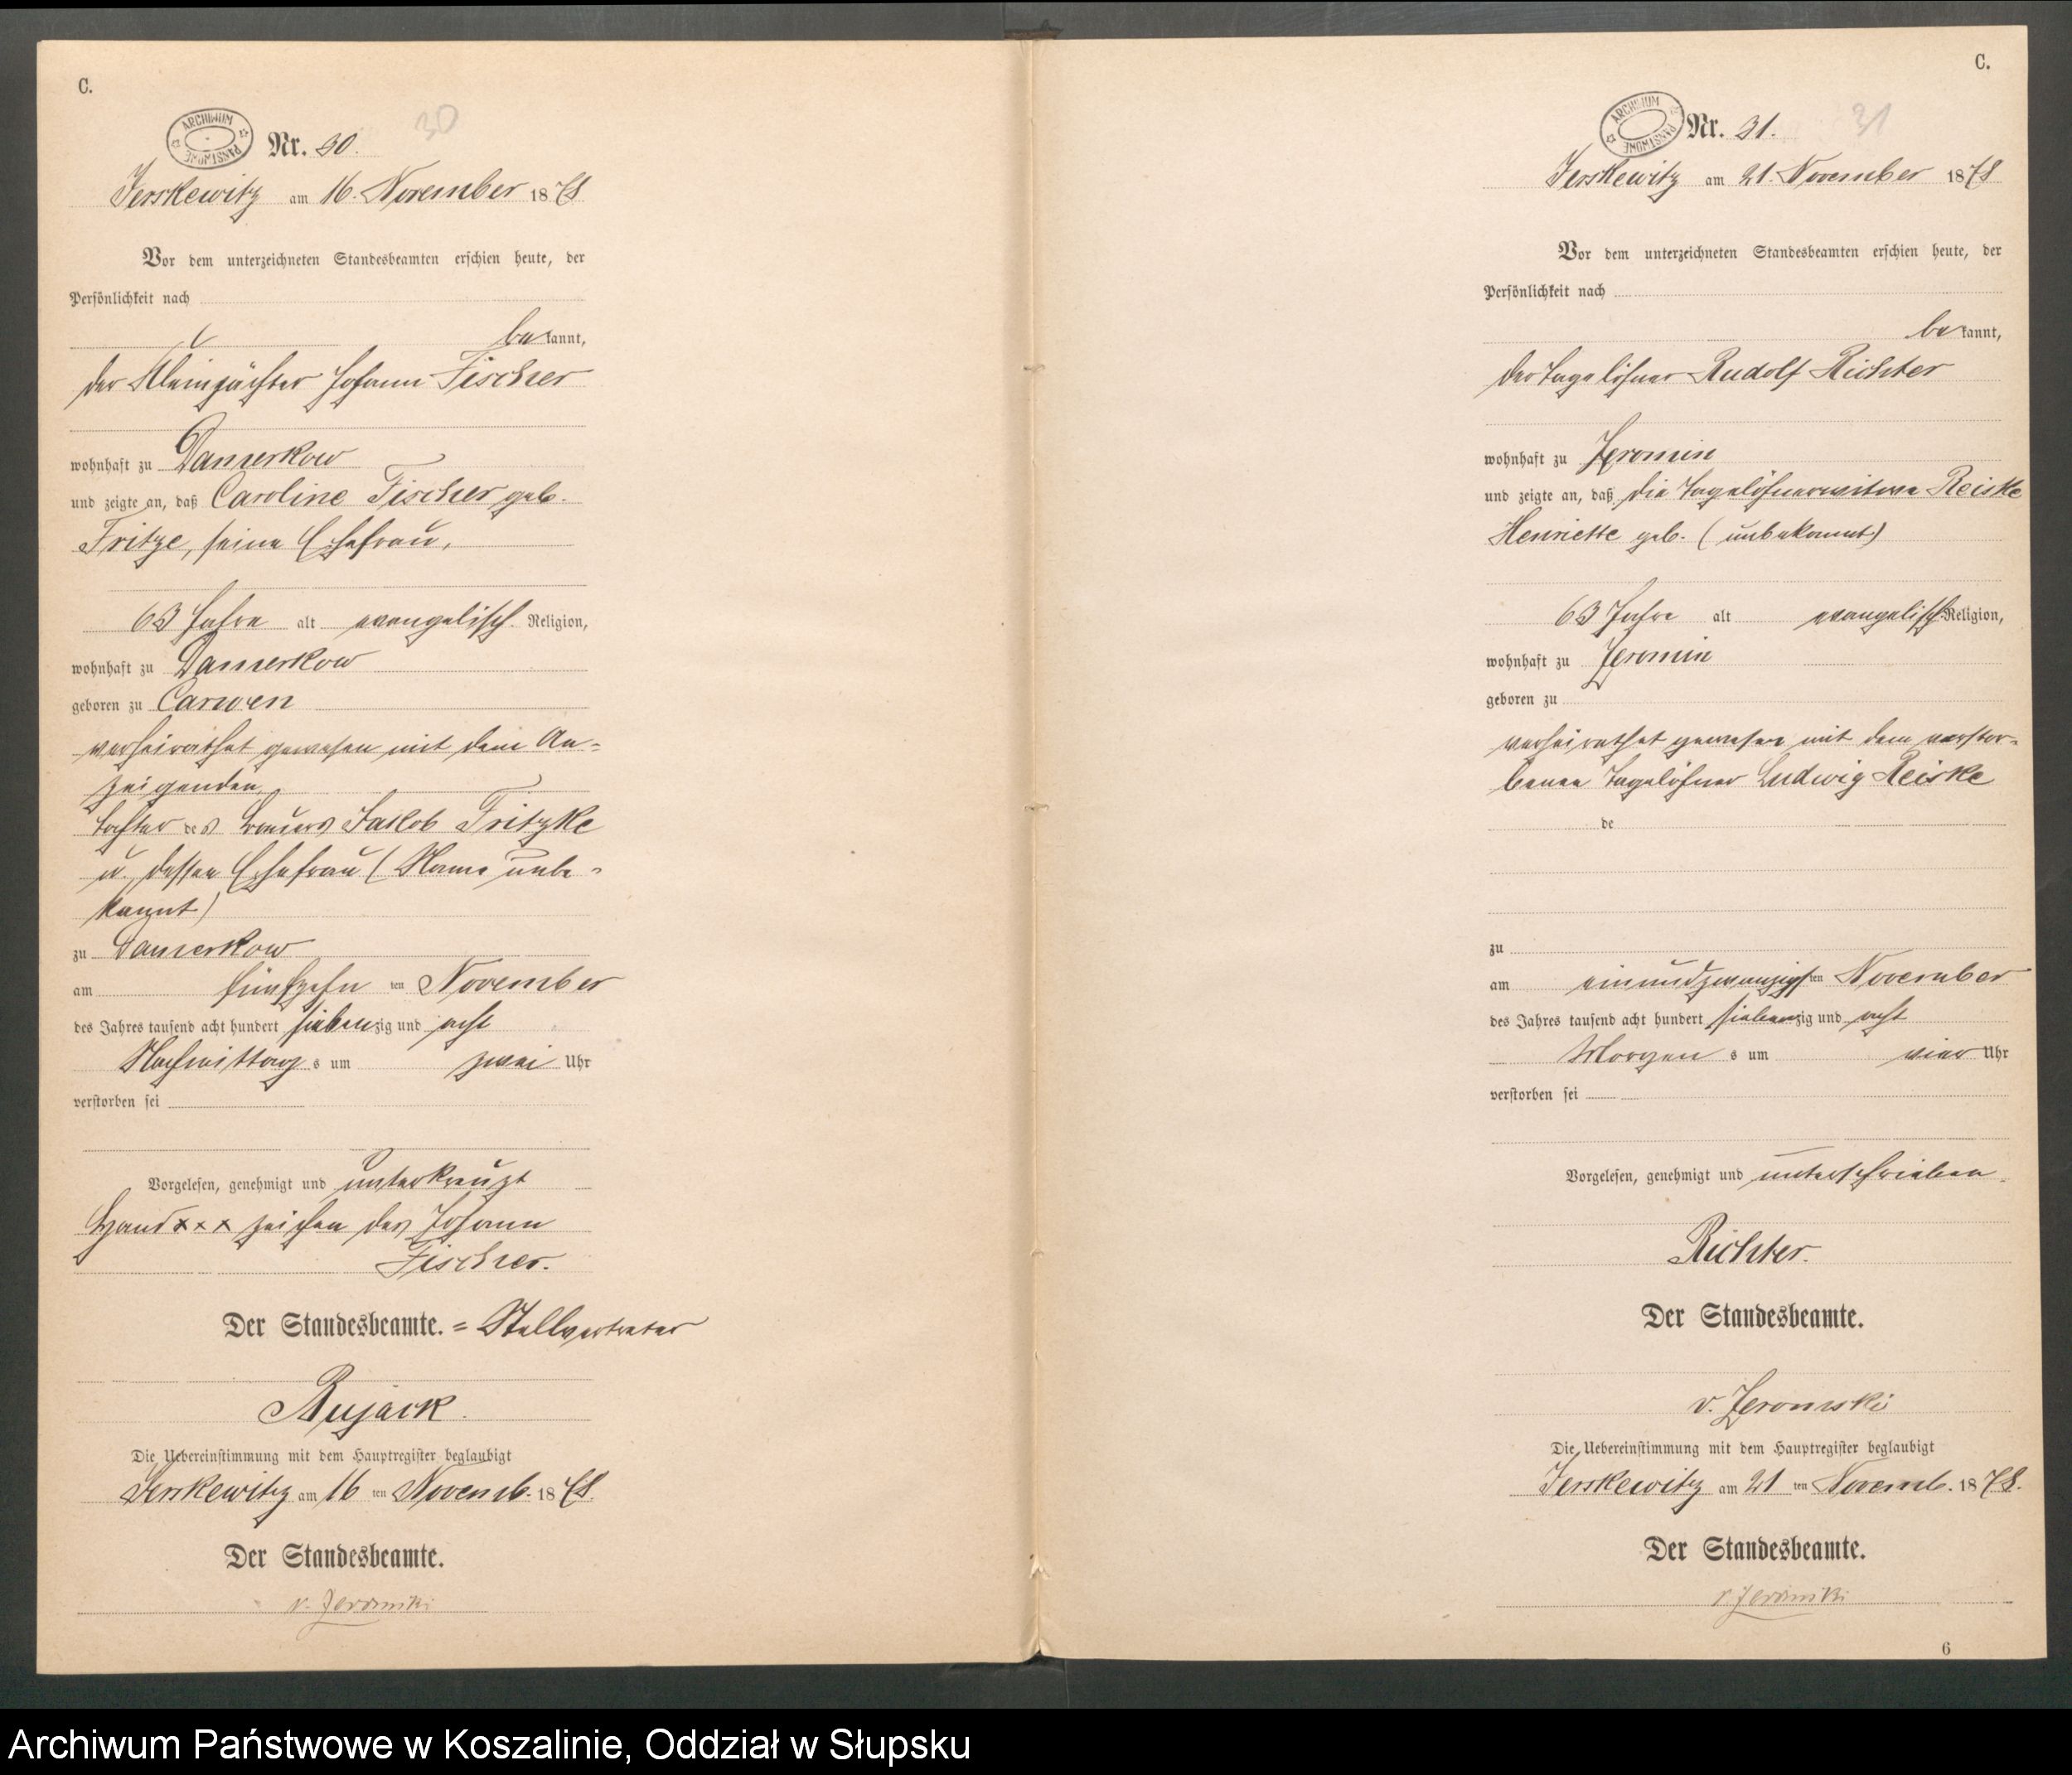 C.
ARCHIWUM PAŃSTWOWE
Nr. 30.
30
Jerskewitz am 16. November 1878
Vor dem unterzeichneten Standesbeamten erschien heute, der
Persönlichkeit nach
bekannt,
der Kleinpächter Johann Fischer
wohnhaft zu Damerkow
und zeigte an, daß Caroline Fischer geb.
Fritze, seine Ehefrau,
63 Jahre alt evangelisch Religion,
wohnhaft zu Damerkow
geboren zu Carwen
verheirathet gewesen mit dem An-
zeigenden,
Tochter des Bauers Jakob Fritzke
u. dessen Ehefrau (Name unbe-
kannt)
zu Damerkow
am fünfzehn ten November
des Jahres tausend acht hundert siebenzig und acht
Nachmittags um zwei Uhr
verstorben sei
Vorgelesen, genehmigt und unterkreuzt
Hand xxx zeichen des Johann
Fischer.
Der Standesbeamte. = Stellvertreter
Rujack.
Die Uebereinstimmung mit dem Hauptregister beglaubigt
Jerskewitz am 16 ten Novemb. 1878.
Der Standesbeamte.
v. Jeromski
C.
ARCHIWUM PAŃSTWOWE
Nr. 31.
31
Jerskewitz am 21. November 1878
Vor dem unterzeichneten Standesbeamten erschien heute, der
Persönlichkeit nach
bekannt,
der Tagelöhner Rudolf Richter
wohnhaft zu Jeromin
und zeigte an, daß die Tagelöhnerwitwe Reiske
Henriette geb. (unbekannt)
63 Jahre alt evangelisch Religion,
wohnhaft zu Jeromin
geboren zu
verheirathet gewesen mit dem verstor-
benen Tagelöhner Ludwig Reiske
de
zu
am einundzwanzigsten November
des Jahres tausend acht hundert siebenzig und acht
Morgens um vier Uhr
verstorben sei
Vorgelesen, genehmigt und unterschrieben
Richter.
Der Standesbeamte.
v. Jeromski
Die Uebereinstimmung mit dem Hauptregister beglaubigt
Jerskewitz am 21 ten Novemb. 1878.
Der Standesbeamte.
v. Jeromski
6
Archiwum Państwowe w Koszalinie, Oddział w Słupsku